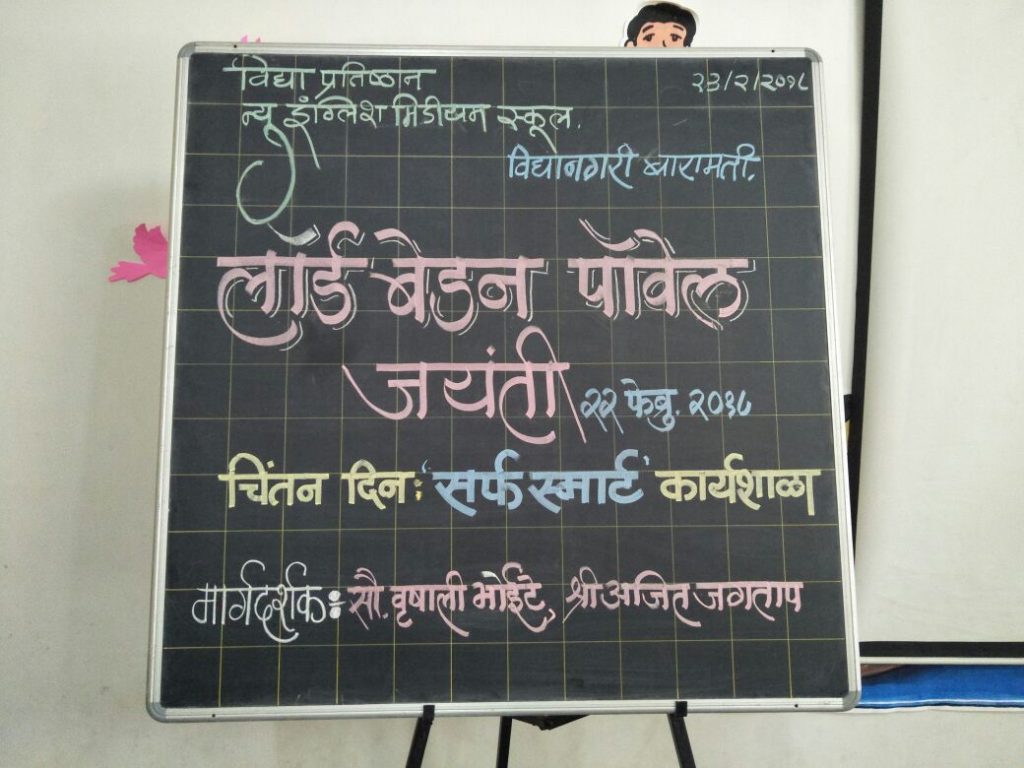 विद्या प्रतिष्ठान
२३/२/२०१८
न्यू इंग्लिश मिडीयम स्कूल.
विद्यानगरी बारामती.
लॉर्ड बेडन पॉवेल
जयंती २२ फेब्रु. २०१८
चिंतन दिन: 'सर्फ स्मार्ट' कार्यशाळा
मार्गदर्शक: सौ. वृषाली भोईटे, श्री अजित जगताप